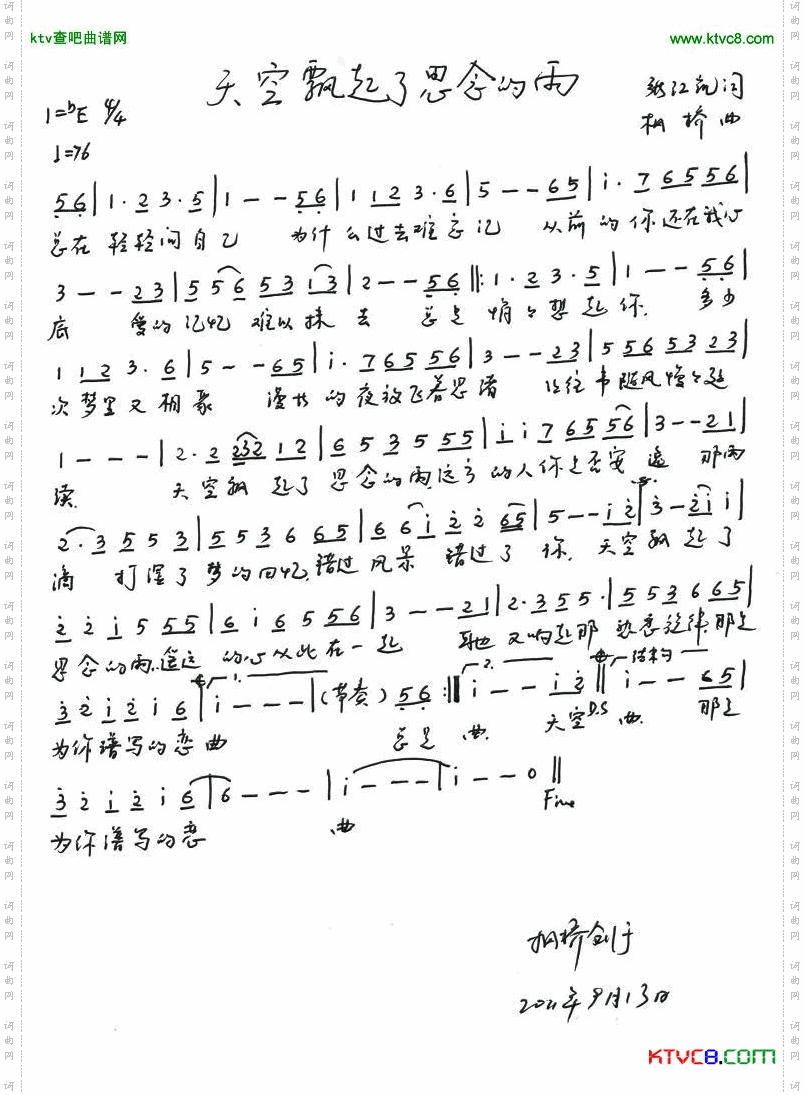 ktv查吧曲谱网
www.ktvc8.com
天空飘起了思念的雨
1=♭E 4/4
词
枫桥 曲
♩=76
5 6 | 1· 2 3· 5 | 1 - - 5 6 | 1 1 2 3· 6 | 5 - - 6 5 | i· 7 6 5 5 5 6 |
总在 轻轻问自己 为什么过去难忘记 从前的你还在我心
3 - - 2 3 | 5 5 6 5 3 1 3 | 2 - - 5 6 ‖: 1· 2 3· 5 | 1 - - 5 6 |
底 爱的记忆 难以抹去 总是悄悄想起你 多少
1 1 2 3· 6 | 5 - - 6 5 | i· 7 6 5 5 5 6 | 3 - - 2 3 | 5 5 6 5 3 2 3 |
次梦里又相聚 漫长的夜放飞着思绪 让往事随风慢慢延
1 - - - | 2· 2 2 3 2 1 2 | 6 5 3 5 5 5 | i i 7 6 5 5 5 6 | 3 - - 2 1 |
续 天空飘起了思念的雨 远方的人你是否安逸 那雨
2· 3 5 5 3 | 5 5 3 6 6 5 | 6 6 i 2 2 6 5 | 5 - - i 2 | 3 - 2 i i |
滴 打湿了梦的回忆 错过风景 错过了你 天空飘起了
2 2 i 5 5 5 | 6 i 6 5 5 5 6 | 3 - - 2 1 | 2· 3 5 5· | 5 5 3 6 6 5 |
思念的雨 遥远的心从此在一起 又响起那 旋律 那是
3 2 i 2 i 6 | i - - - | (节奏) 5 6 :‖ i - - i 2 ‖ i - - 6 5 |
1. 2. 结束句
为你谱写的恋曲 总是 曲 天空 D.S 曲 那是
3 2 i 2 i 6 | 6 - - - | i - - - | i - - 0 ‖
Fine
为你谱写的恋 曲
枫桥创于
2011年9月13日
KTVC8.COM
词曲网